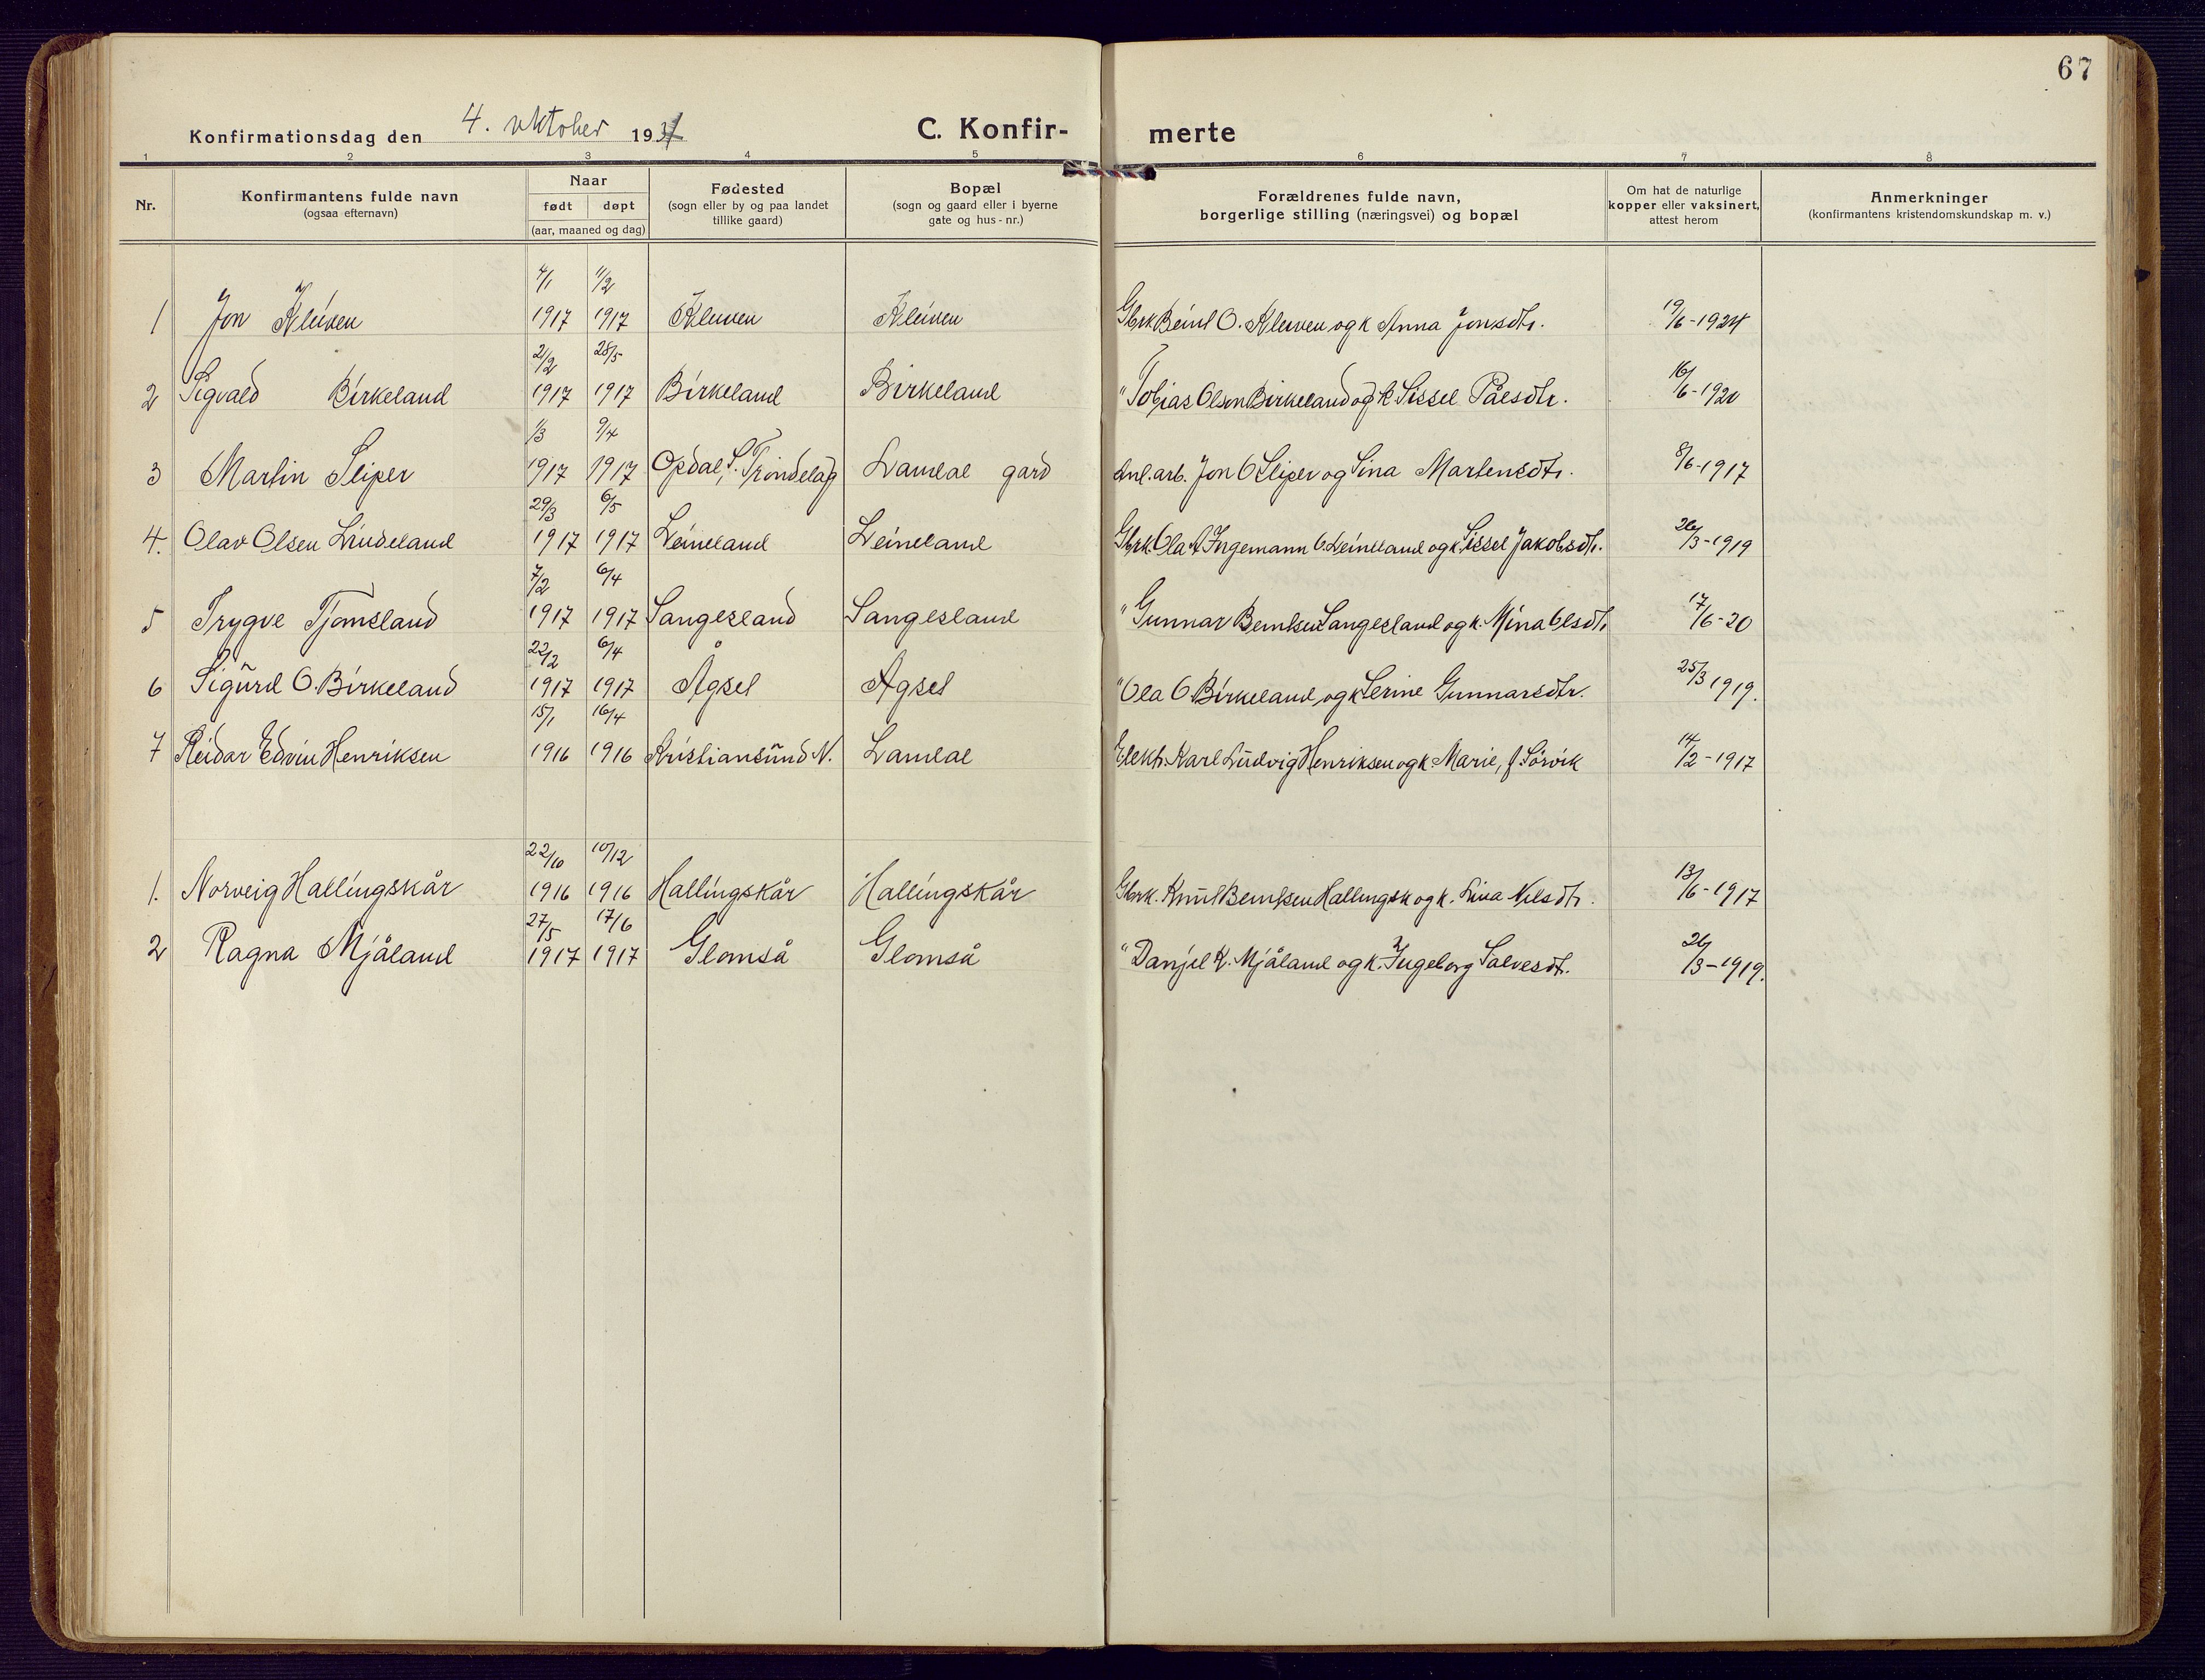 67
Konfirmationsdag den 4. oktober 1931
C. Konfir- merte
1 2 3 4 5 6 7 8
Nr. Konfirmantens fulde navn (ogsaa efternavn) Naar født døpt (aar, maaned og dag) Fødested (sogn eller by og paa landet tillike gaard) Bopæl (sogn og gaard eller i byerne gate og hus-nr.) Forældrenes fulde navn, borgerlige stilling (næringsvei) og bopæl Om hat de naturlige kopper eller vaksinert, attest herom Anmerkninger (konfirmantens kristendomskundskap m. v.)
1 Jon Kleiven 4/1 1917 11/2 1917 Kleiven Kleiven Gbrk Beint O. Kleiven og k Anna Jonsdtr. 19/6-1924
2 Sigvald Birkeland 21/2 1917 28/5 1917 Birkeland Birkeland " Tobias Olsen Birkeland og k Sissel Pålsdtr. 16/6-1920
3 Martin Sliper 1/3 1917 9/4 1917 Opdal, S. Trøndelag Laudal gard Anl. arb. Jon O Sliper og Sina Martensdtr. 8/6-1917
4. Olav Olsen Leineland 29/3 1917 6/5 1917 Leineland Leineland Gbrk. Ola A Ingemann O Leineland og k. Sissel Jakobsdtr. 26/3-1919
5 Trygve Tjomsland 7/2 1917 6/4 1917 Sangesland Sangesland " Gunnar Berntsen Sangesland og k. Mina Olsdtr 17/6-20
6 Sigurd O. Birkeland 22/2 1917 6/4 1917 Ågsel Agsel " Ola O. Birkeland, og k Serine Gunnarsdtr. 25/3 1919.
7 Reidar Edvin Henriksen 15/1 1916 16/4 1916 Kristiansund N. Laudal Elekt. Karl Ludvig Henriksen og k Marie, f Sørvik 14/2-1917
1. Norveig Hallingskår 22/10 1916 10/12 1916 Hallingskår Hallingskår Gbrk. Knut Berntsen Hallingsk og k. Lina Nilsdtr. 13/6-1917
2 Ragna Mjåland 27/5 1917 17/6 1917 Glomså Glomså " Danjel K. Mjåland og k. Ingeborg Salvesdt. 26/3-1919.